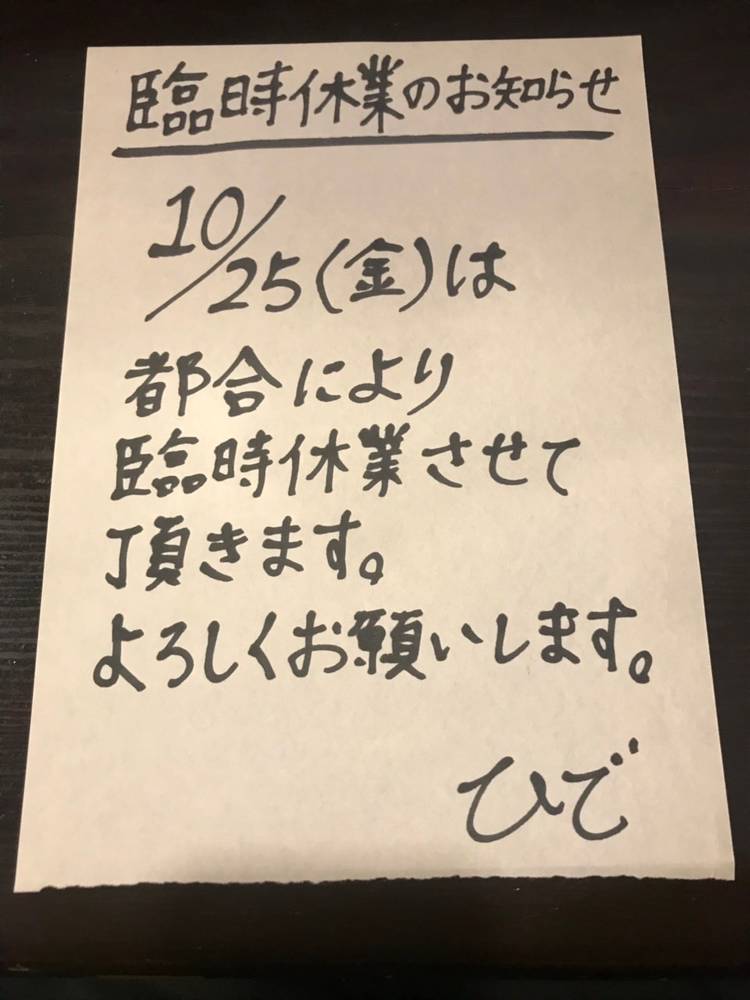 臨時休業のお知らせ
10/25(金)は
都合により
臨時休業させて
頂きます。
よろしくお願いします。
ひで